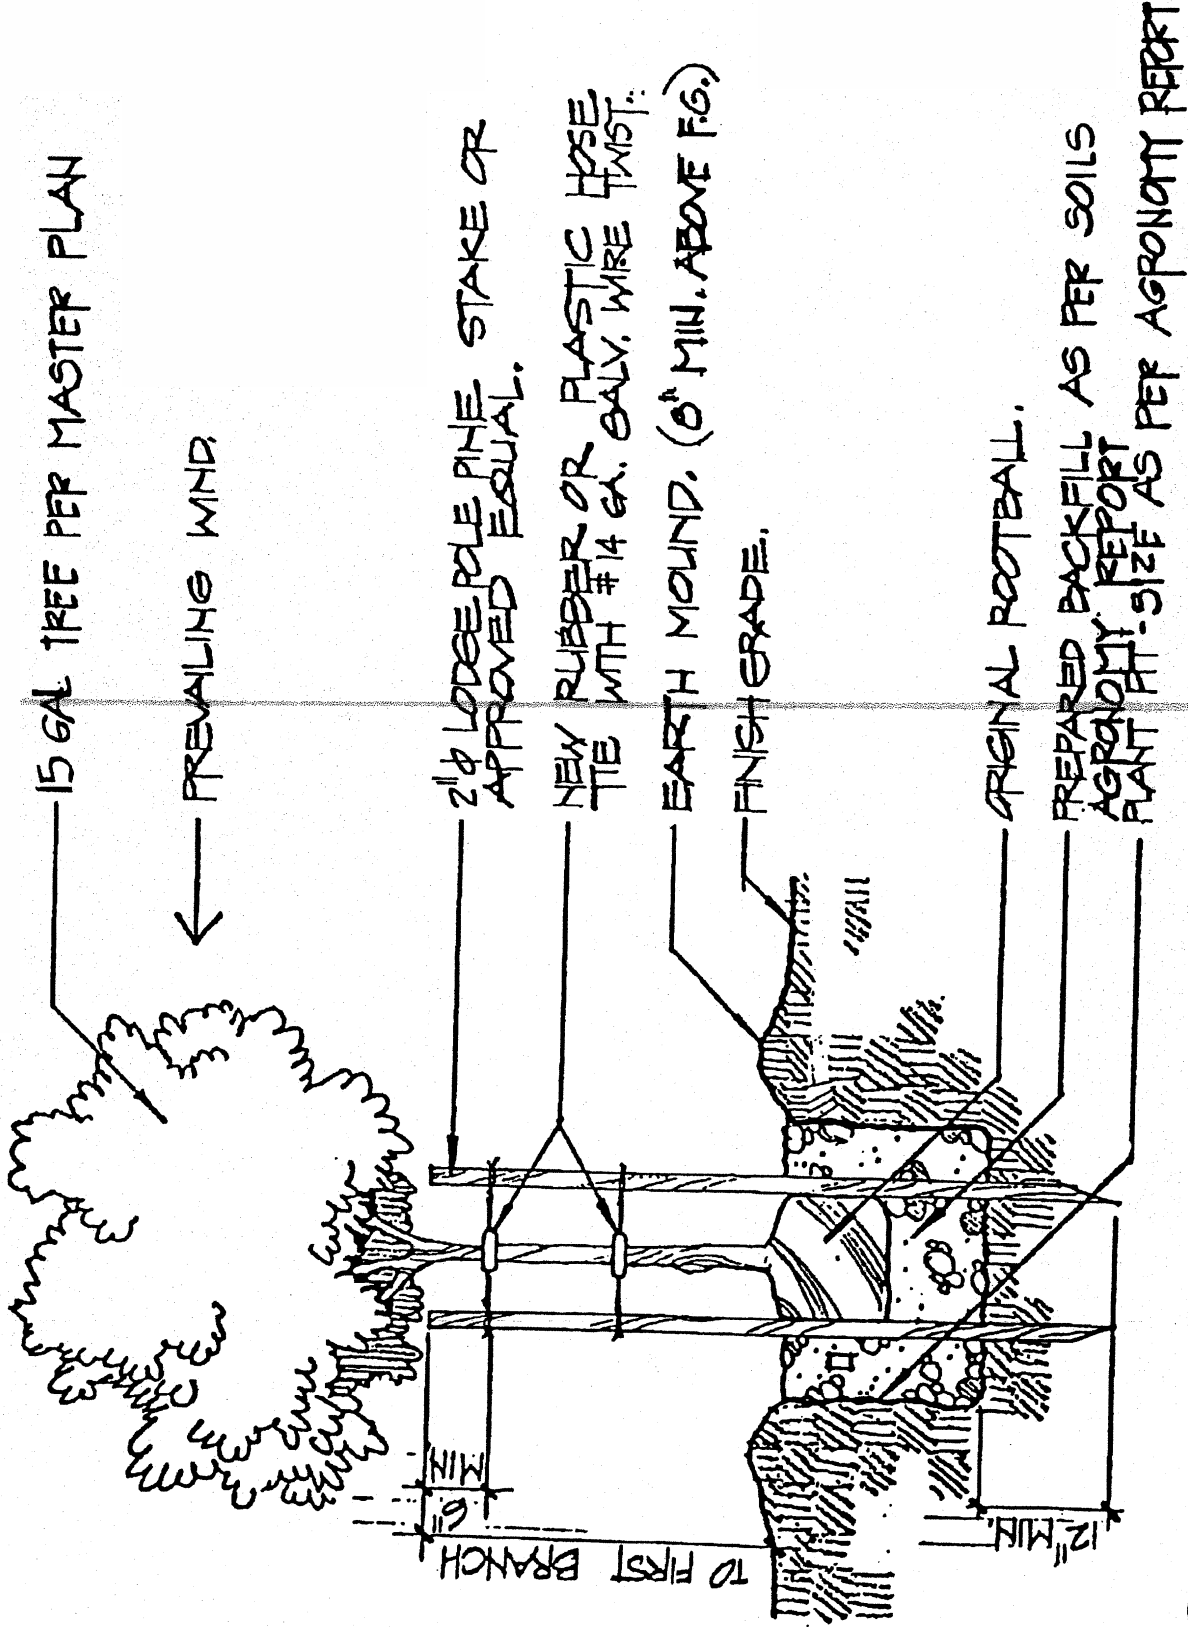 15 GAL TREE PER MASTER PLAN
PREVAILING WIND.
2"ϕ LODGEPOLE PINE STAKE OR
APPROVED EQUAL.
NEW RUBBER OR PLASTIC HOSE
TIE WITH #14 GA. GALV. WIRE TWIST.
EARTH MOUND. (8" MIN. ABOVE F.G.)
FINISH GRADE.
ORIGINAL ROOTBALL.
PREPARED BACKFILL AS PER SOILS
AGRONOMY REPORT
PLANT PIT-SIZE AS PER AGRONOMY REPORT
6" MIN
TO FIRST BRANCH
12" MIN.